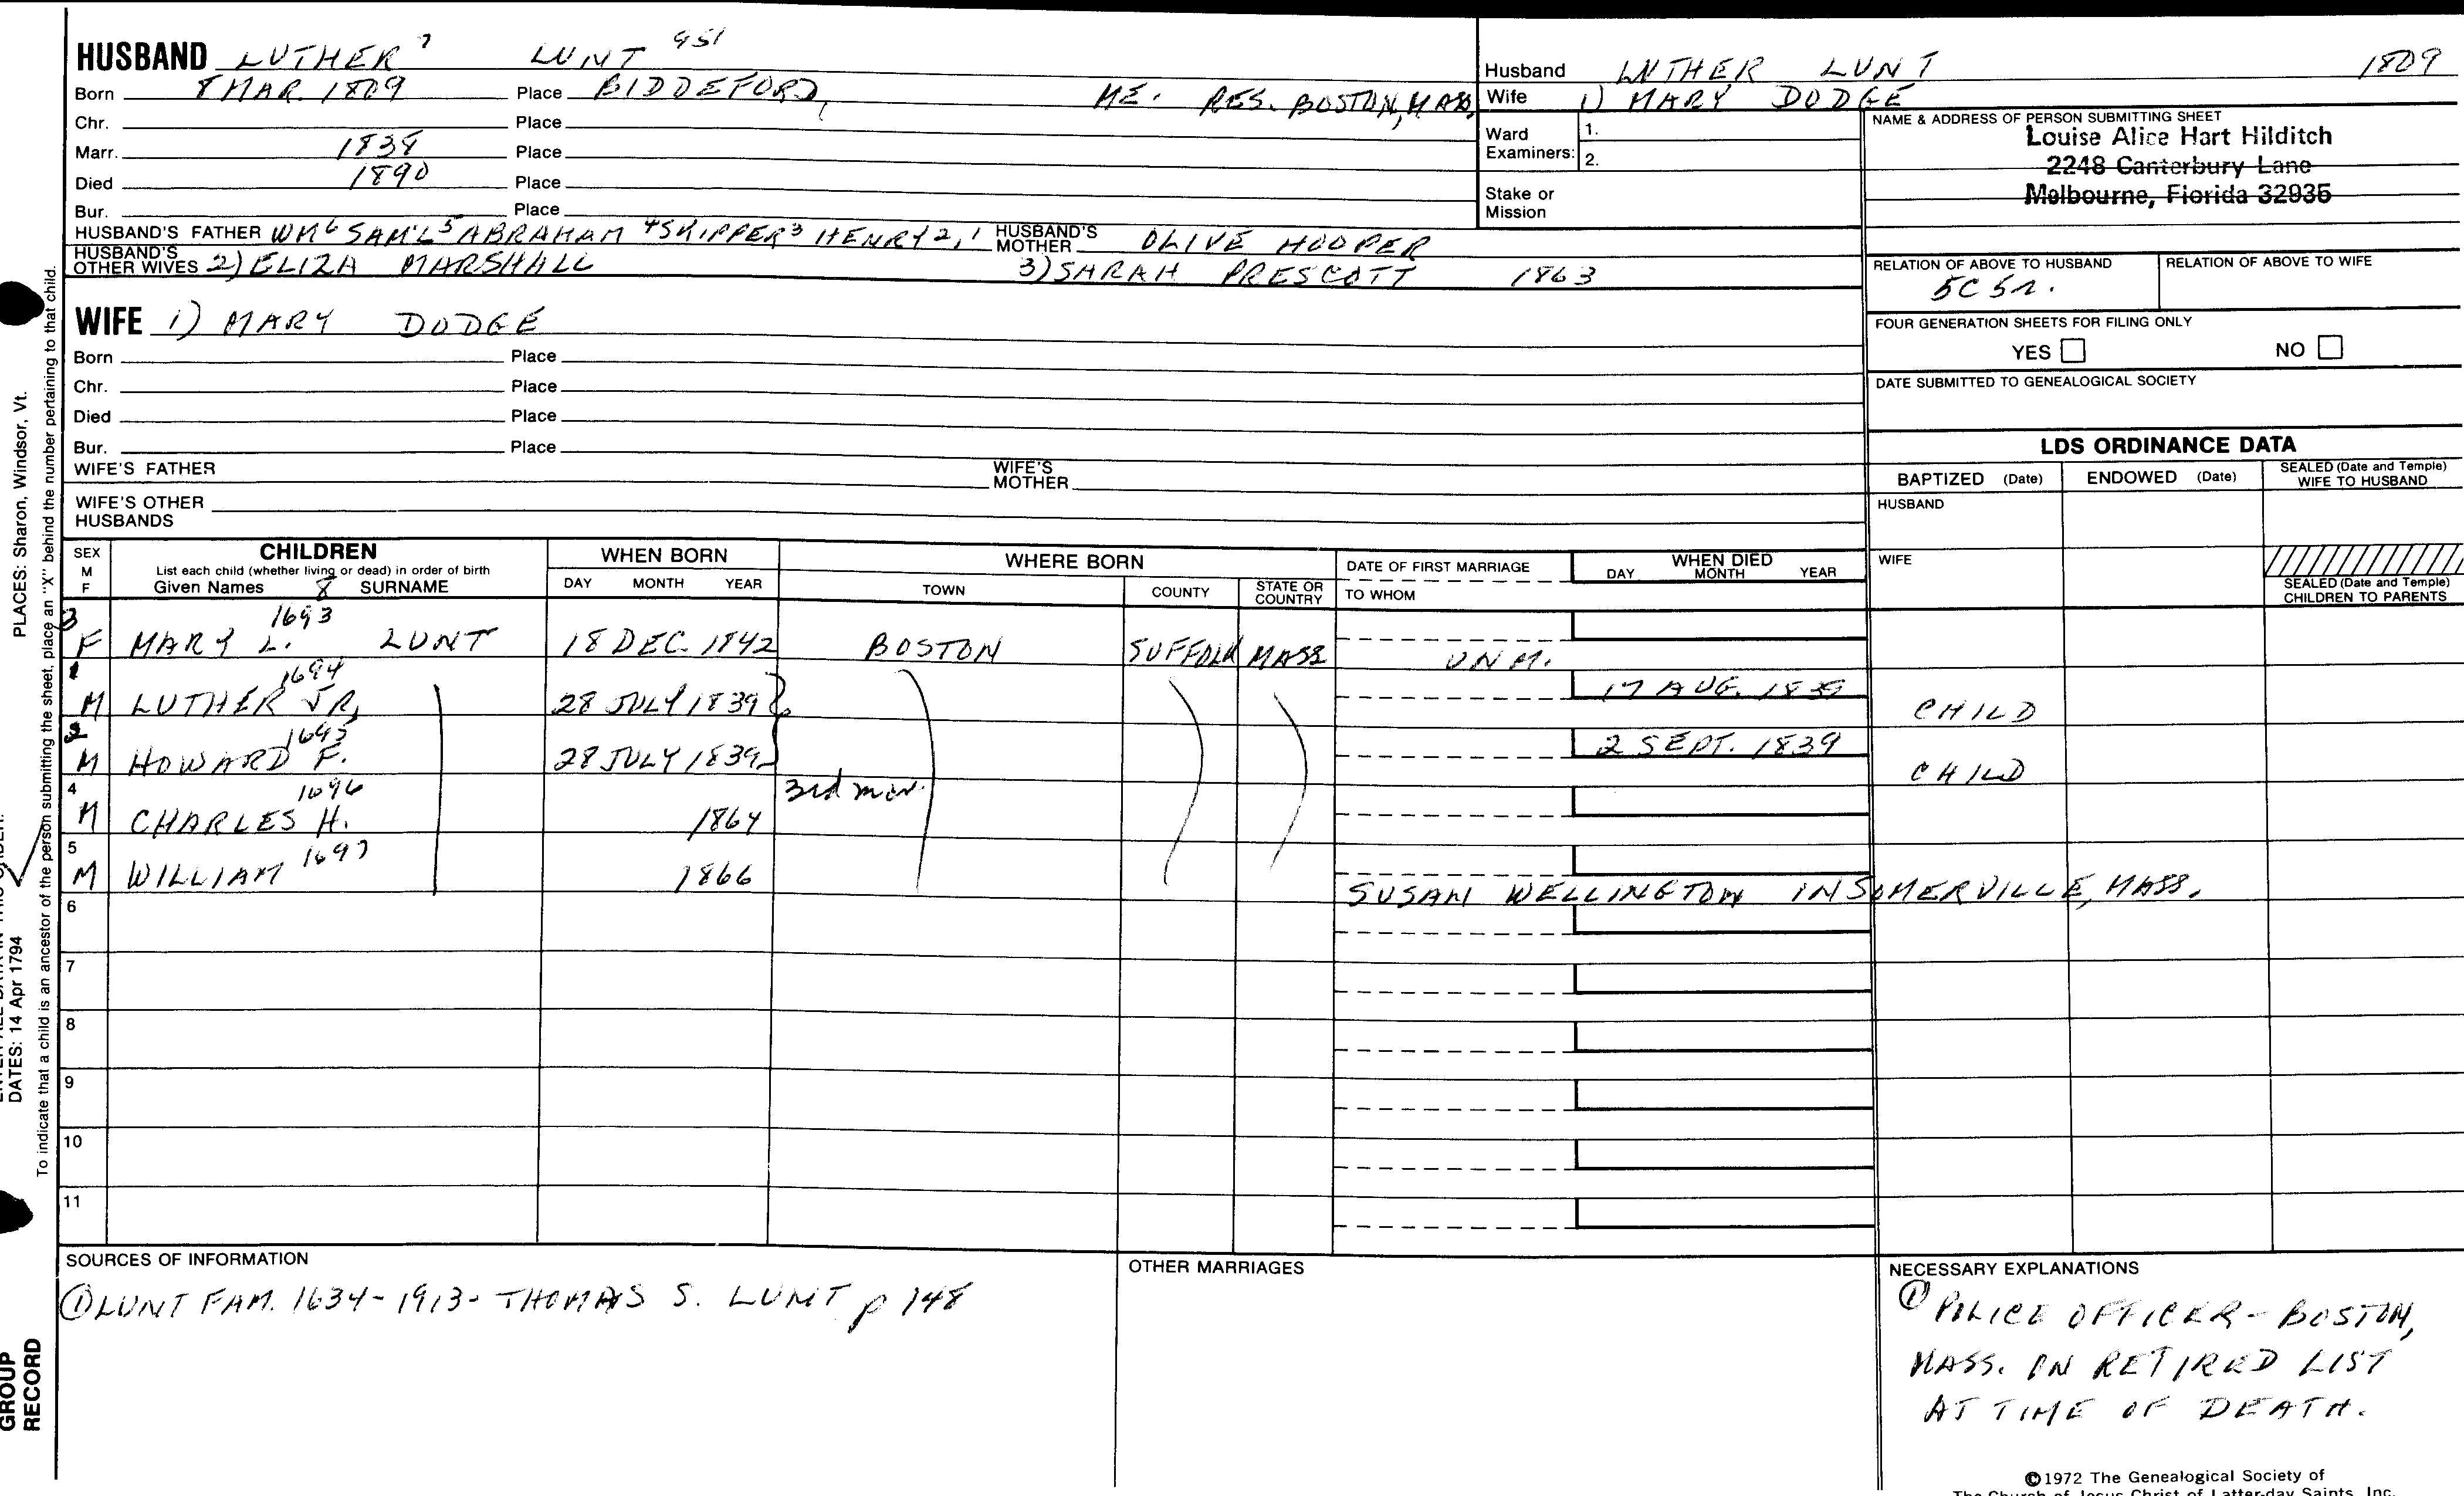 HUSBAND LUTHER 7 LUNT 951
Born 8 MAR. 1809 Place BIDDEFORD, ME. RES. BOSTON, MASS,
Chr. Place
Marr. 1838 Place
Died 1890 Place
Bur. Place
HUSBAND'S FATHER WM 6 SAM'L 5 ABRAHAM 4 SKIPPER 3 HENRY 2, 1 HUSBAND'S MOTHER OLIVE HOOPER
HUSBAND'S OTHER WIVES 2) ELIZA MARSHALL 3) SARAH PRESCOTT 1863
WIFE 1) MARY DODGE
Born Place
Chr. Place
Died Place
Bur. Place
WIFE'S FATHER WIFE'S MOTHER
WIFE'S OTHER HUSBANDS
Husband LUTHER LUNT 1809
Wife 1) MARY DODGE
Ward Examiners: 1.
2.
Stake or Mission
NAME & ADDRESS OF PERSON SUBMITTING SHEET
Louise Alice Hart Hilditch
2248 Canterbury Lane
Melbourne, Florida 32935
RELATION OF ABOVE TO HUSBAND RELATION OF ABOVE TO WIFE
5C 5r.
FOUR GENERATION SHEETS FOR FILING ONLY
YES NO
DATE SUBMITTED TO GENEALOGICAL SOCIETY
LDS ORDINANCE DATA
BAPTIZED (Date) ENDOWED (Date) SEALED (Date and Temple) WIFE TO HUSBAND
HUSBAND
WIFE
SEALED (Date and Temple) CHILDREN TO PARENTS
SEX M F
CHILDREN
List each child (whether living or dead) in order of birth
Given Names 8 SURNAME
WHEN BORN
DAY MONTH YEAR
WHERE BORN
TOWN COUNTY STATE OR COUNTRY
DATE OF FIRST MARRIAGE
TO WHOM
WHEN DIED
DAY MONTH YEAR
3 1693
F MARY L. LUNT 18 DEC. 1842 BOSTON SUFFOLK MASS UNM.
1 1694
M LUTHER JR. 28 JULY 1839 17 AUG. 1839 CHILD
2 1695
M HOWARD F. 28 JULY 1839 2 SEPT. 1839 CHILD
4 1696 3rd mar.
M CHARLES H. 1864
5 1697
M WILLIAM 1866 SUSAN WELLINGTON IN SOMERVILLE, MASS.
6
7
8
9
10
11
SOURCES OF INFORMATION
① LUNT FAM. 1634-1913- THOMAS S. LUNT p 148
OTHER MARRIAGES
NECESSARY EXPLANATIONS
① POLICE OFFICER - BOSTON,
MASS. ON RETIRED LIST
AT TIME OF DEATH.
©1972 The Genealogical Society of
The Church of Jesus Christ of Latter-day Saints, Inc.
PLACES: Sharon, Windsor, Vt.
DATES: 14 Apr 1794
To indicate that a child is an ancestor of the person submitting the sheet, place an "X" behind the number pertaining to that child.
GROUP
RECORD